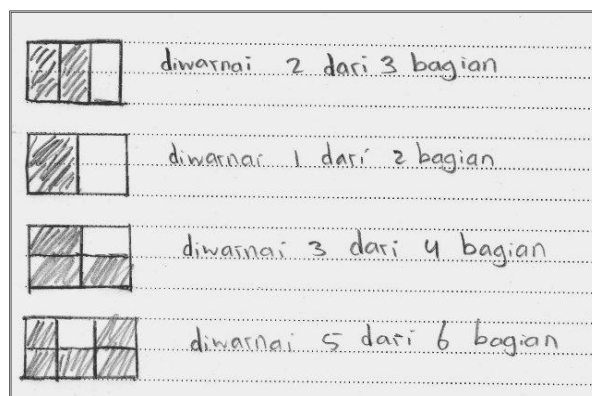 diwarnai 2 dari 3 bagian
diwarnai 1 dari 2 bagian
diwarnai 3 dari 4 bagian
diwarnai 5 dari 6 bagian